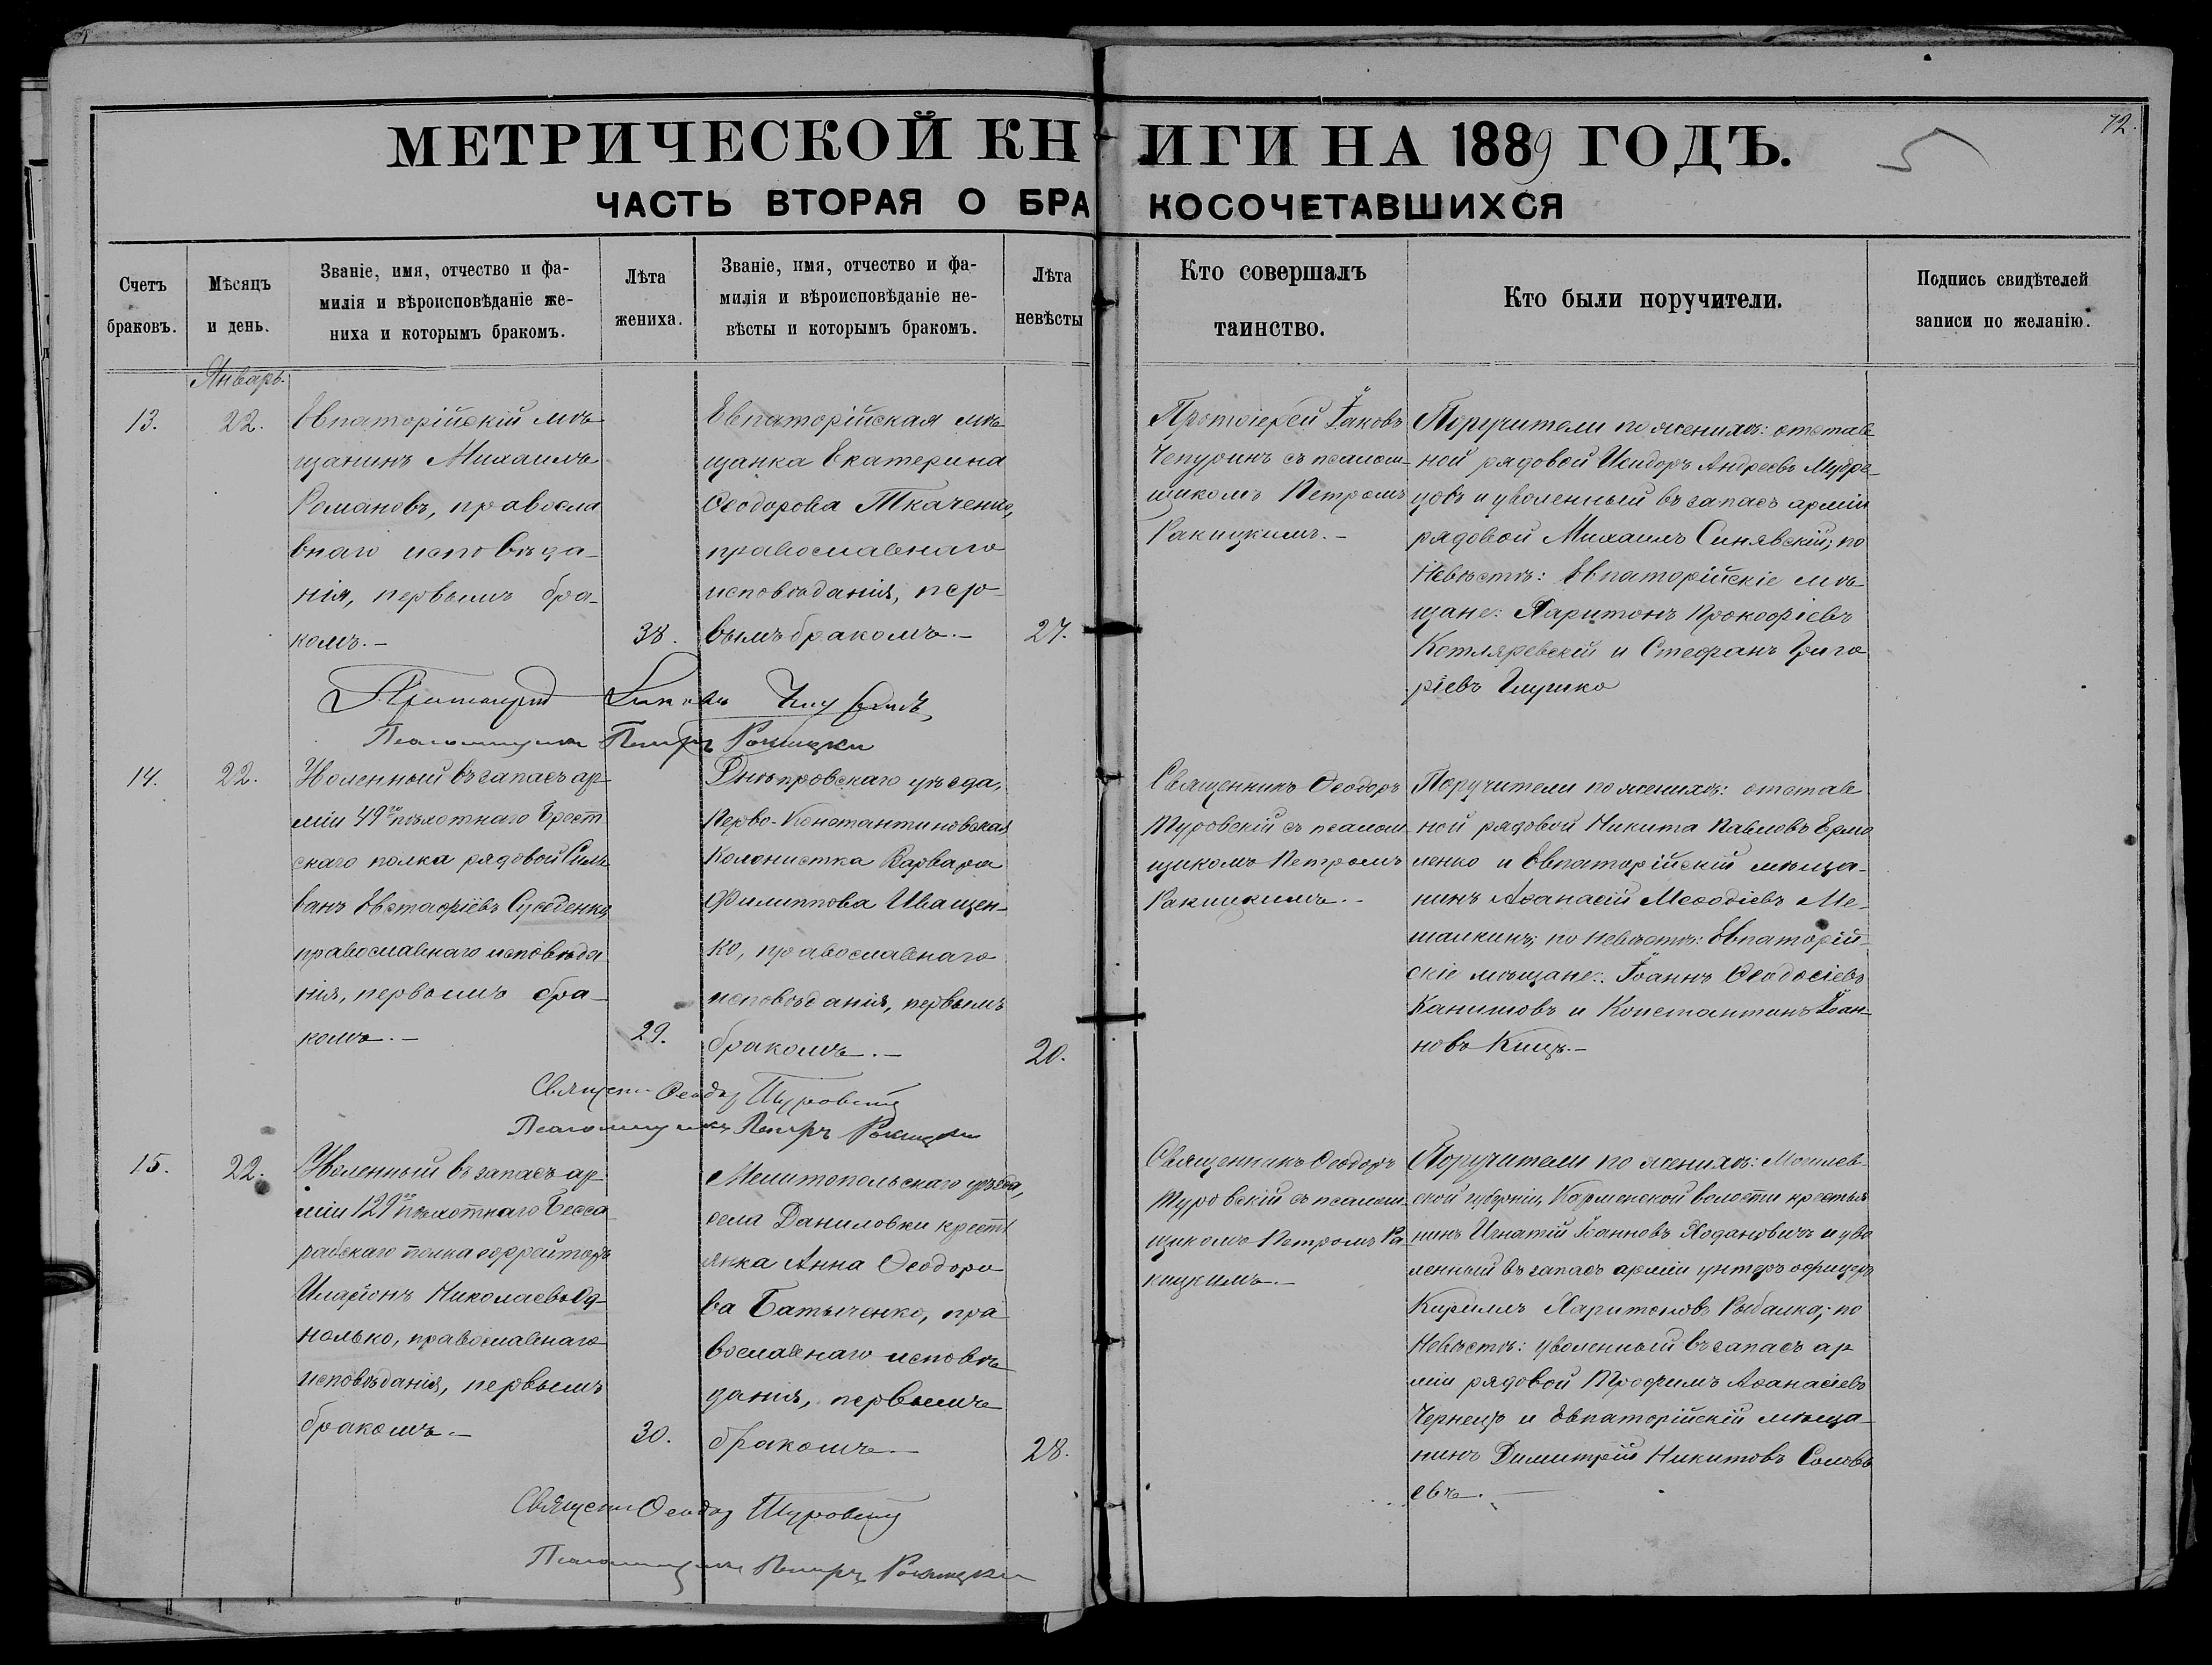 МЕТРИЧЕСКОЙ КНИГИ НА 1889 ГОДЪ.
72.
ЧАСТЬ ВТОРАЯ О БРАКОСОЧЕТАВШИХСЯ
Счетъ
браковъ.
Мѣсяцъ
и день.
Званіе, имя, отчество и фа-
милія и вѣроисповѣданіе же-
ниха и которымъ бракомъ.
Лѣта
жениха.
Званіе, имя, отчество и фа-
милія и вѣроисповѣданіе не-
вѣсты и которымъ бракомъ.
Лѣта
невѣсты
Кто совершалъ
таинство.
Кто были поручители.
Подпись свидѣтелей
записи по желанію.
Январь.
13.
22.
Евпаторійскій мѣ-
щанинъ Михаилъ
Романовъ, правосла
внаго исповѣда-
нія, первымъ бра-
комъ.-
38.
Евпаторійская мѣ-
щанка Екатерина
Ѳеодорова Ткаченко,
православнаго
исповѣданія, пер-
вымъ бракомъ.-
27.
Протоіерей Іаковъ
Чепуринъ съ псалом-
щикомъ Петромъ
Ракицкимъ.-
Поручители по женихѣ: отстав
ной рядовой Исидоръ Андреевъ
и уволенный въ запасъ арміи
рядовой Михаилъ Синявскій; по
Невѣстѣ: Евпаторійскіе мѣ-
щане: Харитонъ Прокофіевъ
Котляревскій и Стефанъ Григо
ріевъ Глушко
Протоіерей Іаковъ Чепуринъ
Псаломщикъ Петръ Ракицкій
14.
22.
Уволенный въ запасъ ар
міи 49го пѣхотнаго Брест
скаго полка рядовой Силь
ванъ Евстафіевъ
православнаго исповѣда
нія, первымъ бра-
комъ.-
29.
Днѣпровскаго уѣзда,
Перво-Константиновская
Колонистка Варвара
Филиппова Иващен-
ко, православнаго
исповѣданія, первымъ
бракомъ.-
20.
Священникъ Ѳеодоръ
Туровскій съ псалом
щикомъ Петромъ
Ракицкимъ.-
Поручители по женихѣ: отстав
ной рядовой Никита Павловъ Ермо
ленко и Евпаторійскій мѣща-
нинъ Аѳанасій Меѳодіевъ Ме-
шалкинъ; по невѣстѣ: Евпаторій-
скіе мѣщане: Іоаннъ Ѳеодосіевъ
и Константинъ Іоан-
новъ
Священ Ѳеодор Туровскій
Псаломщикъ Петръ Ракицкій
15.
22.
Уволенный въ запасъ ар
міи 129го пѣхотнаго Бесса
рабскаго полка ефрейторъ
Иларіонъ Николаевъ Од-
нолько, православнаго
исповѣданія, первымъ
бракомъ.-
30.
Мелитопольскаго уѣзда,
села Даниловки кресть
янка Анна Ѳеодоро
ва Батыченко, пра
вославнаго исповѣ
данія, первымъ
бракомъ.-
28.
Священникъ Ѳеодоръ
Туровскій съ псалом-
щикомъ Петромъ Ра
кицкимъ.-
Поручители по женихѣ: Могилев-
ской губерніи, Кормянской волости крестья
нинъ Игнатій Іоанновъ Ходановичъ и уво
ленный въ запасъ арміи унтеръ офицеръ
Кириллъ Харитоновъ Рыбалка; по
Невѣстѣ: уволенный въ запасъ ар
міи рядовой Трофимъ Аѳанасіевъ
Чернецъ и Евпаторійскій мѣща-
нинъ Димитрій Никитовъ Соловь
евъ.-
Священ Ѳеодор Туровскій
Псаломщикъ Петръ Ракицкій